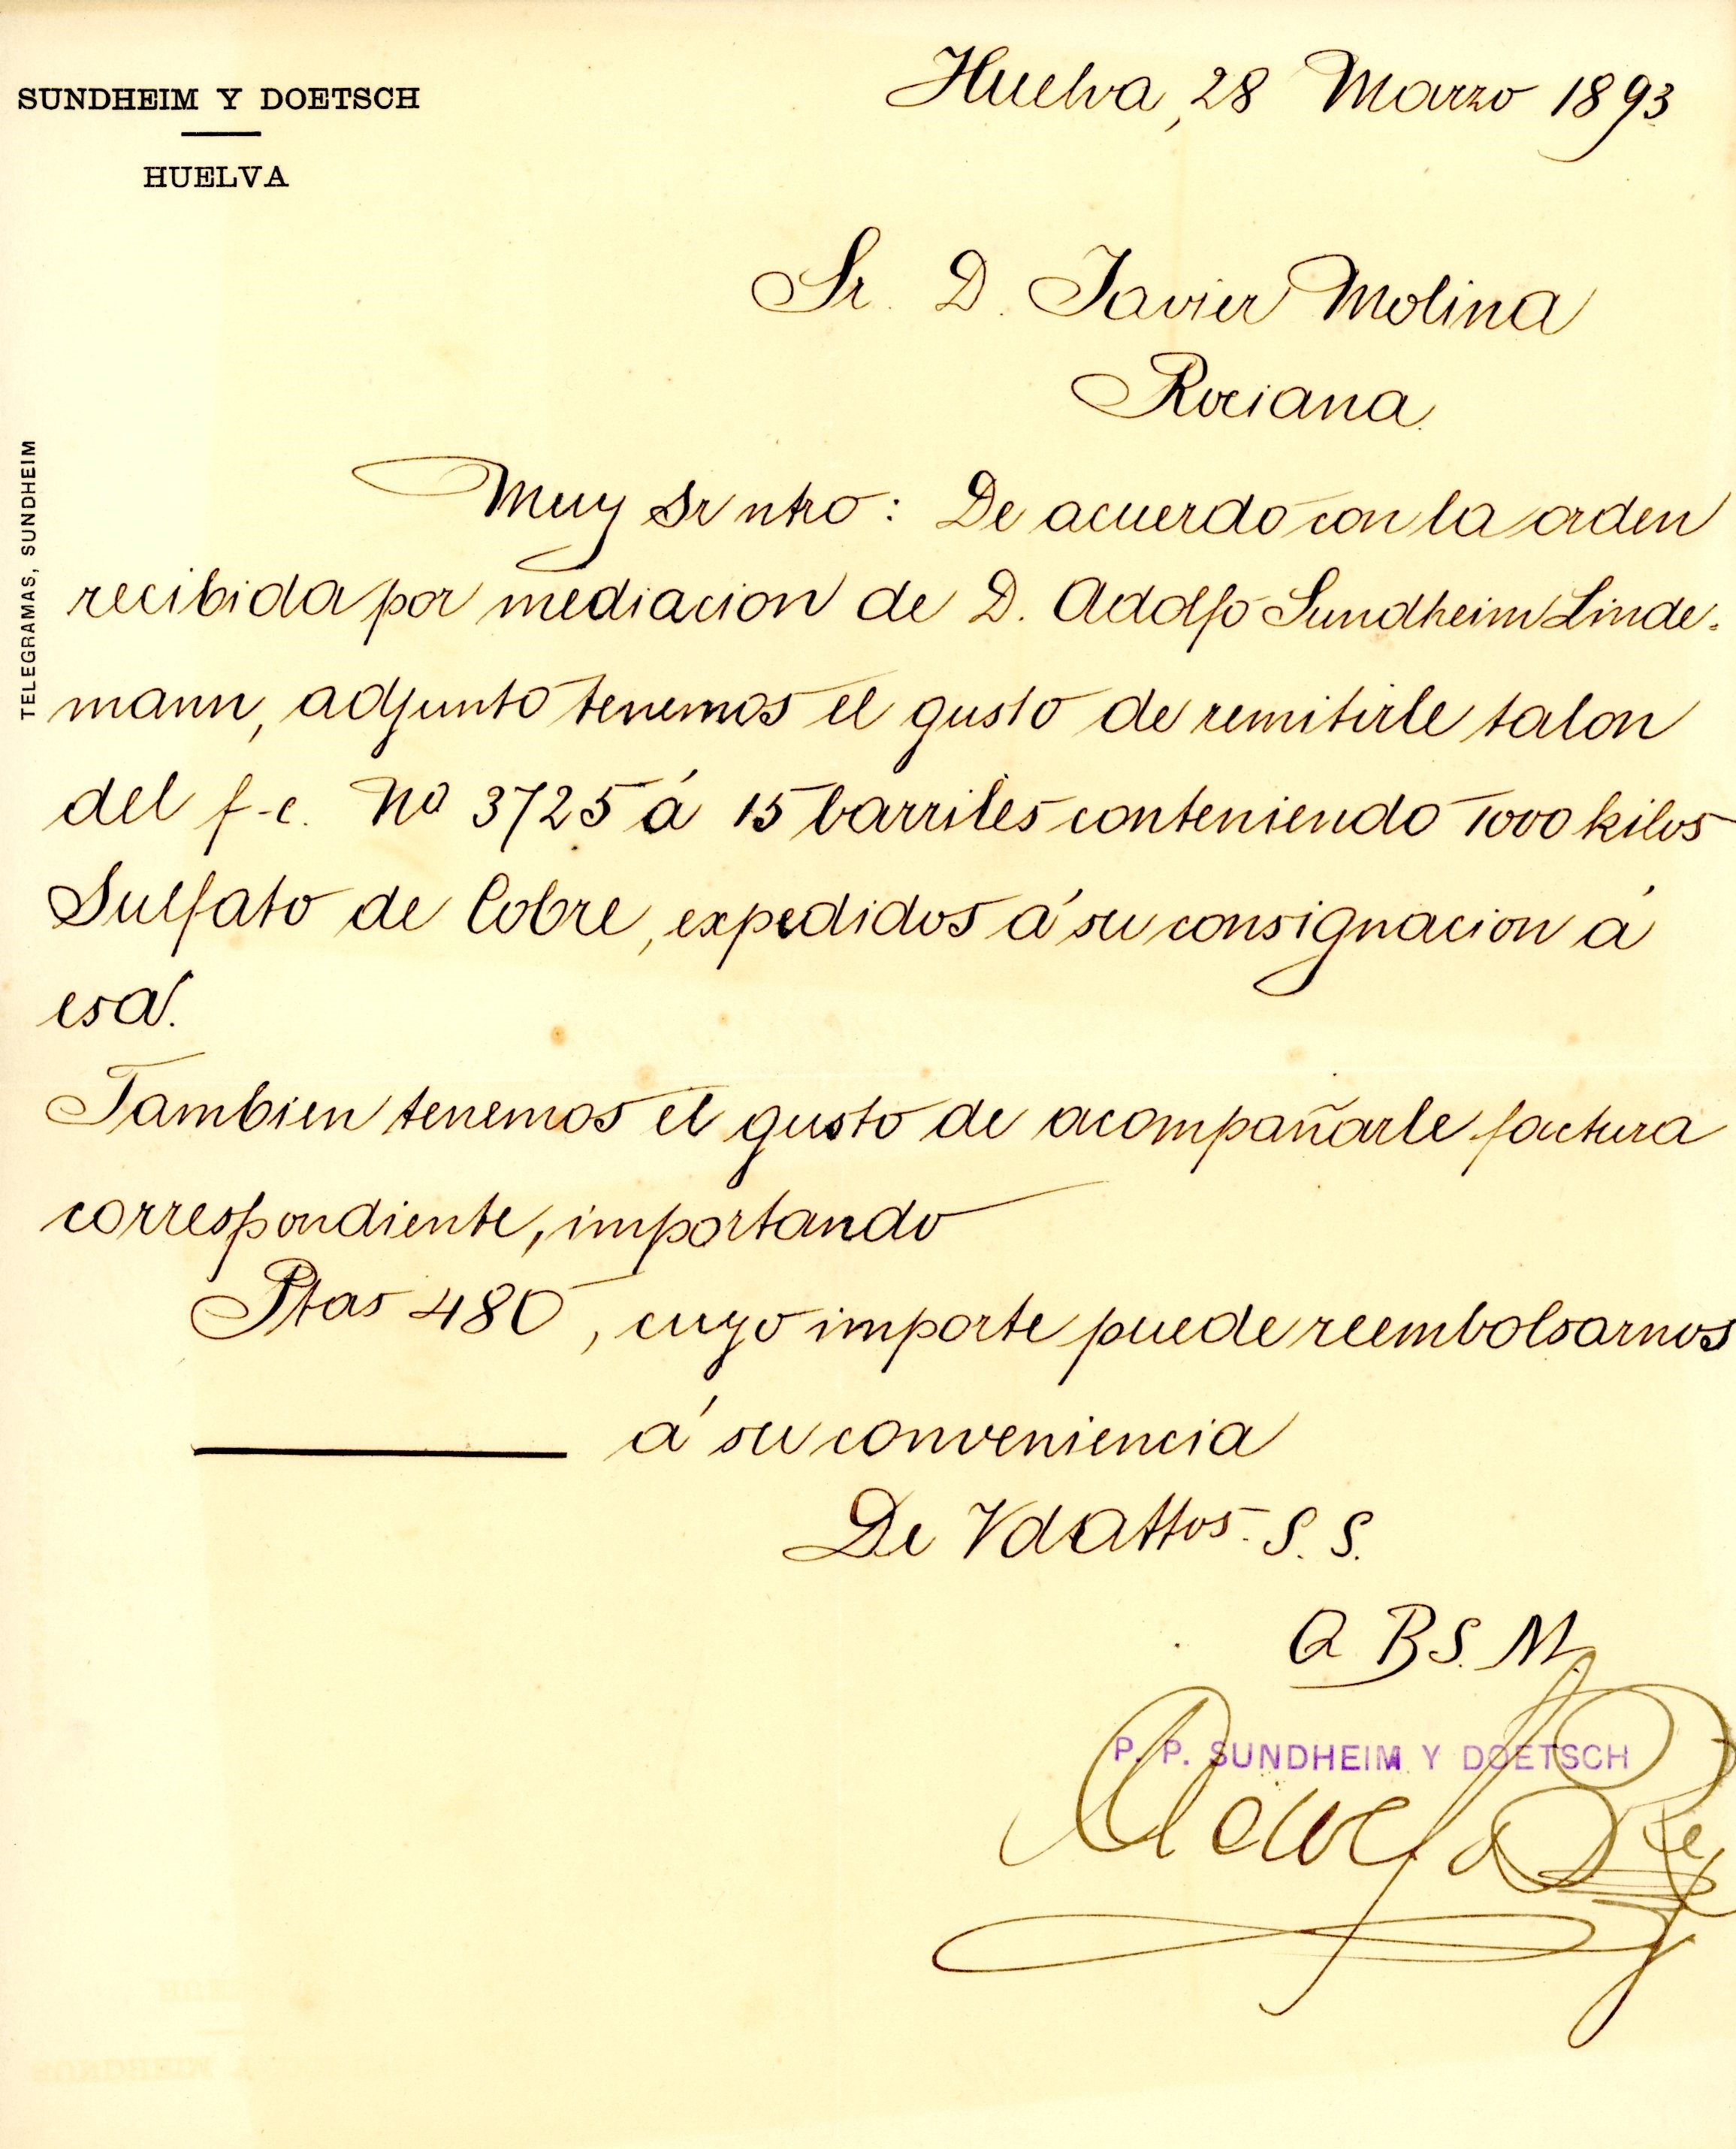 SUNDHEIM Y DOETSCH
HUELVA
TELEGRAMAS, SUNDHEIM
Huelva, 28 Marzo 1893
Sr. D. Javier Molina
Rociana.
Muy Sr ntro: De acuerdo con la orden
recibida por mediacion de D. Adolfo Sundheim Linde-
mann, adjunto tenemos el gusto de remitirle talon
del f-c. No 3725 á 15 barriles conteniendo 1000 kilos
Sulfato de Cobre, expedidos á su consignacion á
esa.
Tambien tenemos el gusto de acompañarle factura
correspondiente, importando
Ptas 480, cuyo importe puede reembolsarnos
á su conveniencia
De Vd attos. S. S.
Q B S. M.
P. P. SUNDHEIM Y DOETSCH
Adolfo Rey